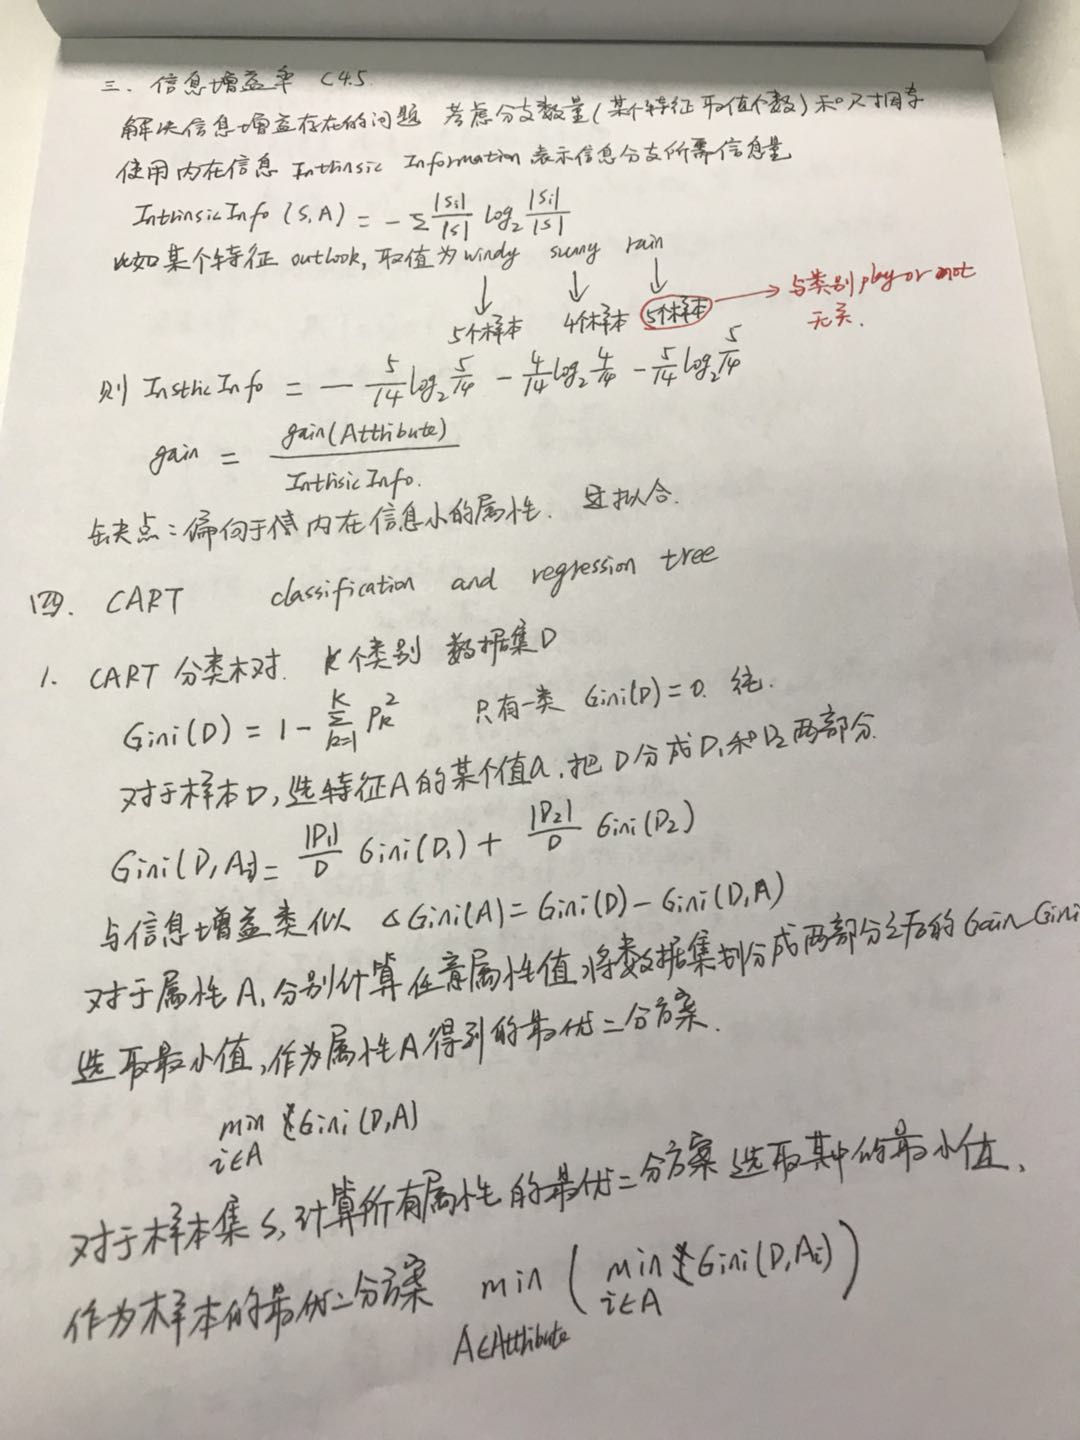 三. 信息增益率 C4.5.
解决信息增益存在的问题 考虑分支数量(某个特征取值个数)和尺寸因素
使用内在信息 Inthnsic Information 表示信息分支所需信息量
IntrinsicInfo (S,A) = - Σ |Si|/|S| log₂ |Si|/|S|
比如某个特征 outlook, 取值为 windy sunny rain
↓ ↓ ↓
5个样本 4个样本 5个样本 → 与类别 play or not
无关.
则 InsthicInfo = - 5/14 log₂ 5/14 - 4/14 log₂ 4/14 - 5/14 log₂ 5/14
gain = gain(Atthibute) / InthisicInfo.
缺点: 偏向于 内在信息小的属性. 过拟合.
四. CART classification and regression tree
1. CART 分类树. K个类别 数据集D
Gini(D) = 1 - Σ_{k=1}^{K} P_k² 只有一类 Gini(D)=0. 纯.
对于样本D, 选特征A的某个值a, 把D分成D₁和D₂两部分.
Gini(D,Ai) = |D₁|/D Gini(D₁) + |D₂|/D Gini(D₂)
与信息增益类似 △Gini(A) = Gini(D) - Gini(D,A)
对于属性A, 分别计算任意属性值,将数据集划分成两部分之后的 Gain_Gini
选取最小值,作为属性A得到的最优二分方案.
min i∈A Gini(D,A)
对于样本集S, 计算所有属性的最优二分方案 选取其中的最小值,
作为样本的最优二分方案 min A∈Atthibute ( min i∈A Gini(D,Ai) )